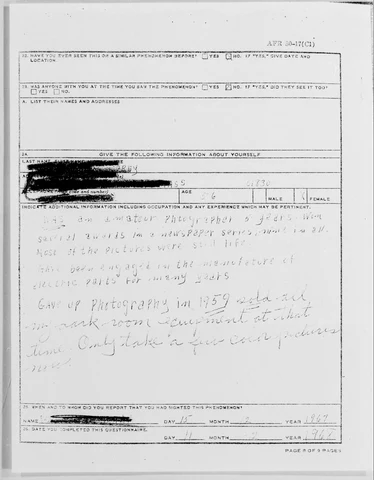 AFR 80-17(C1)
32. HAVE YOU EVER SEEN THIS OR A SIMILAR PHENOMENON BEFORE? YES NO. IF "YES," GIVE DATE AND LOCATION.
33. WAS ANYONE WITH YOU AT THE TIME YOU SAW THE PHENOMENON? YES NO. IF "YES," DID THEY SEE IT TOO?
YES NO.
A. LIST THEIR NAMES AND ADDRESSES
34. GIVE THE FOLLOWING INFORMATION ABOUT YOURSELF
LAST NAME, FIRST NAME,
MALE FEMALE
INDICATE ADDITIONAL INFORMATION INCLUDING OCCUPATION AND ANY EXPERIENCE WHICH MAY BE PERTINENT.
Was an amateur Photographer years. Won
several awards in a newspaper series,
Most of the pictures were still life.
Have been engaged in the manufacture of
electric parts for many years
Gave up Photography in 1959 sold all
my dark room equipment at that
time. Only take a few color pictures
now.
35. WHEN AND TO WHOM DID YOU REPORT THAT YOU HAD SIGHTED THIS PHENOMENON?
NAME DAY 15 MONTH 2 YEAR 1967
36. DATE YOU COMPLETED THIS QUESTIONNAIRE. DAY MONTH YEAR
PAGE 5 OF 5 PAGES